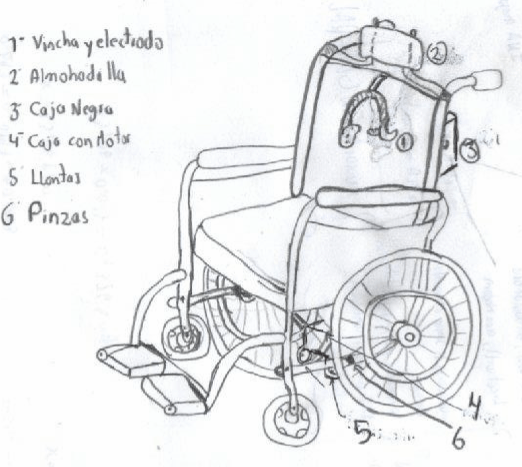 1- Vincha y electrodo
2 Almohadilla
3 Caja Negra
4- Caja con Motor
5 Llantas
6 Pinzas
2
1
3
4
5
6